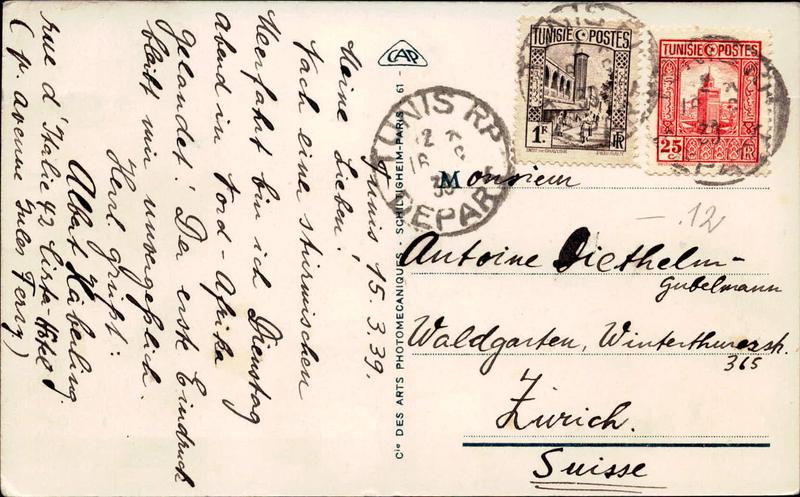 Tunis 15.3.39.
Meine Lieben!
Nach einer stürmischen
Meerfahrt bin ich Dienstag
abend in Nord-Afrika
gelandet! Der erste Eindruck
bleibt mir unvergeßlich.
Herzl. grüßt:
Albert
rue d'Italie 42
(p. avenue Jules Ferry)
CAP
Cie DES ARTS PHOTOMECANIQUES - SCHILTIGHEIM-PARIS - 61 -
TUNIS RP
DEPART
TUNISIE POSTES
1F
RF
TUNISIE POSTES
25c
RF
Monsieur
-.12
Antoine Diethelm-
Gubelmann
Waldgarten, Winterthurerstr.
365
Zürich.
Suisse